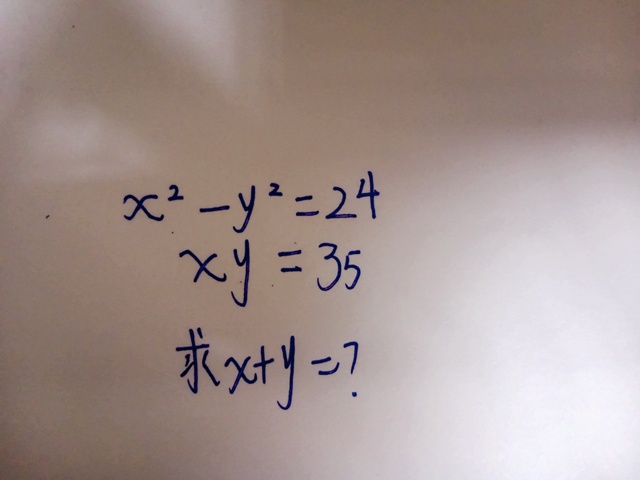 x² - y² = 24
xy = 35
求x+y=?